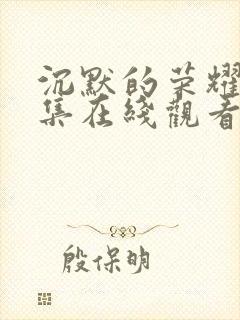 沉默的荣耀
集在綫觀看
殷保明